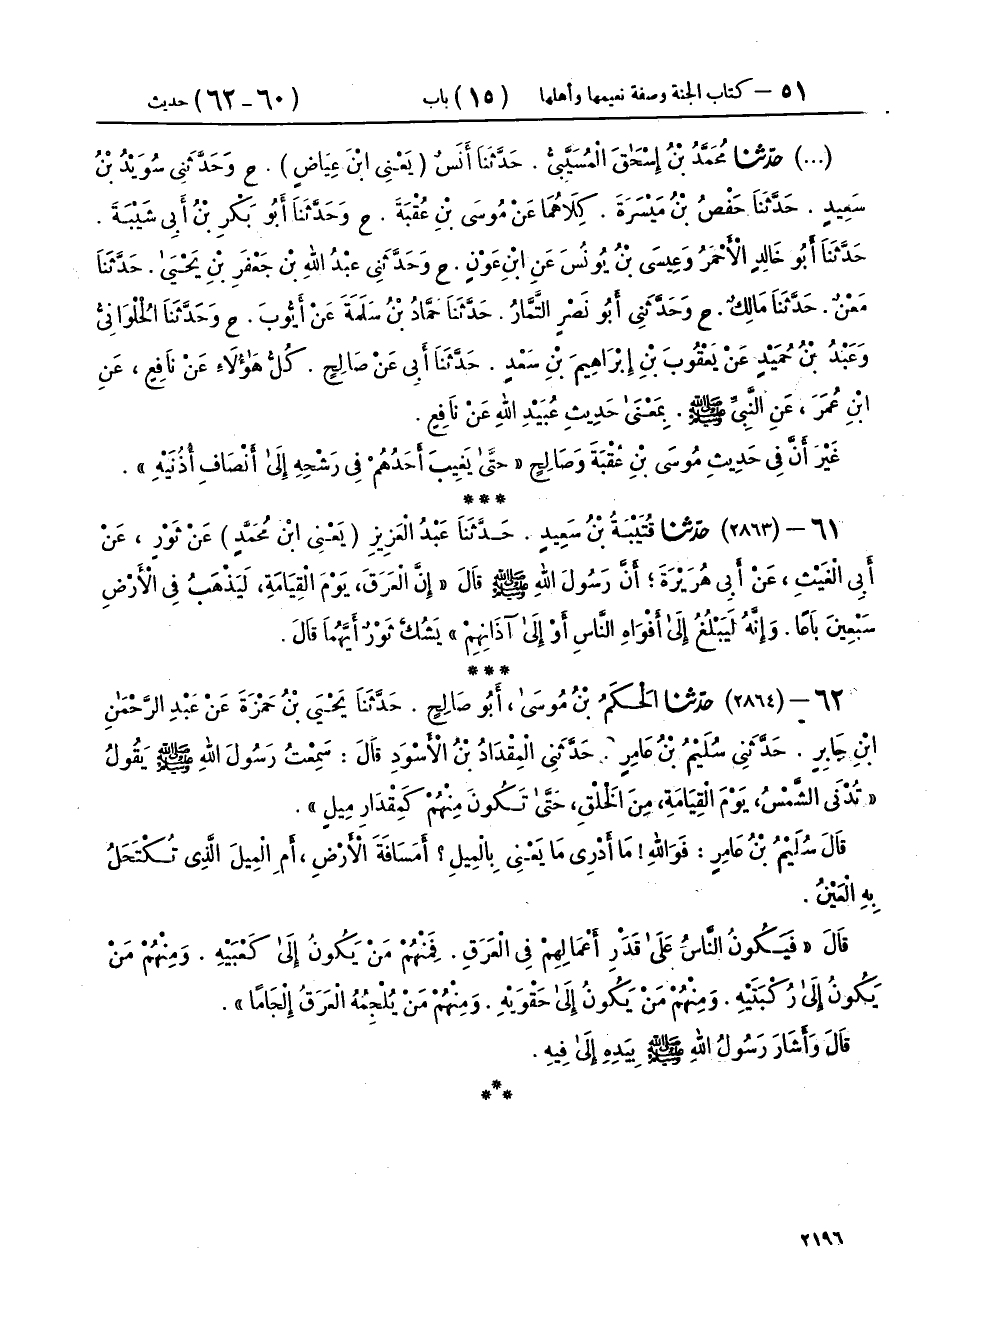 ٥١ – كتاب الجنة وصفة نعيمها وأهلها (١٥) باب (٦٠-٦٢) حديث
(...) حدّثنا مُحَمَّدُ بْنُ إِسْحَٰقَ الْمُسَيَّبِيُّ . حَدَّثَنَا أَنَسٌ (يَعْنِي ابْنَ عِيَاضٍ) . ح وَحَدَّثَنِي سُوَيْدُ بْنُ
سَعِيدٍ . حَدَّثَنَا حَفْصُ بْنُ مَيْسَرَةَ . كِلَاهُمَا عَنْ مُوسَى بْنِ عُقْبَةَ . ح وَحَدَّثَنَا أَبُو بَكْرِ بْنُ أَبِي شَيْبَةَ .
حَدَّثَنَا أَبُو خَالِدٍ الْأَحْمَرُ وَعِيسَى بْنُ يُونُسَ عَنِ ابْنِ عَوْنٍ . ح وَحَدَّثَنِي عَبْدُ اللهِ بْنُ جَعْفَرِ بْنِ يَحْيَىٰ . حَدَّثَنَا
مَعْنٌ . حَدَّثَنَا مَالِكٌ . ح وَحَدَّثَنِي أَبُو نَصْرٍ التَّمَّارُ . حَدَّثَنَا حَمَّادُ بْنُ سَلَمَةَ عَنْ أَيُّوبَ . ح وَحَدَّثَنَا الْحُلْوَانِيُّ
وَعَبْدُ بْنُ حُمَيْدٍ عَنْ يَعْقُوبَ بْنِ إِبْرَاهِيمَ بْنِ سَعْدٍ . حَدَّثَنَا أَبِي عَنْ صَالِحٍ . كُلُّ هَٰؤُلَاءِ عَنْ نَافِعٍ ، عَنِ
ابْنِ عُمَرَ ، عَنِ النَّبِيِّ ﷺ . بِمَعْنَىٰ حَدِيثِ عُبَيْدِ اللهِ عَنْ نَافِعٍ .
غَيْرَ أَنَّ فِي حَدِيثِ مُوسَى بْنِ عُقْبَةَ وَصَالِحٍ « حَتَّىٰ يَغِيبَ أَحَدُهُمْ فِي رَشْحِهِ إِلَىٰ أَنْصَافِ أُذُنَيْهِ » .
***
٦١ – (٢٨٦٣) حدّثنا قُتَيْبَةُ بْنُ سَعِيدٍ . حَدَّثَنَا عَبْدُ الْعَزِيزِ (يَعْنِي ابْنَ مُحَمَّدٍ) عَنْ ثَوْرٍ ، عَنْ
أَبِي الْغَيْثِ ، عَنْ أَبِي هُرَيْرَةَ ؛ أَنَّ رَسُولَ اللهِ ﷺ قَالَ « إِنَّ الْعَرَقَ، يَوْمَ الْقِيَامَةِ، لَيَذْهَبُ فِي الْأَرْضِ
سَبْعِينَ بَاعًا . وَإِنَّهُ لَيَبْلُغُ إِلَىٰ أَفْوَاهِ النَّاسِ أَوْ إِلَىٰ آذَانِهِمْ » يَشُكُّ ثَوْرٌ أَيَّهُمَا قَالَ .
***
٦٢ – (٢٨٦٤) حدّثنا الْحَكَمُ بْنُ مُوسَىٰ ، أَبُو صَالِحٍ . حَدَّثَنَا يَحْيَى بْنُ حَمْزَةَ عَنْ عَبْدِ الرَّحْمَٰنِ
ابْنِ جَابِرٍ . حَدَّثَنِي سُلَيْمُ بْنُ عَامِرٍ . حَدَّثَنِي الْمِقْدَادُ بْنُ الْأَسْوَدِ قَالَ : سَمِعْتُ رَسُولَ اللهِ ﷺ يَقُولُ
« تُدْنَى الشَّمْسُ، يَوْمَ الْقِيَامَةِ، مِنَ الْخَلْقِ، حَتَّىٰ تَكُونَ مِنْهُمْ كَمِقْدَارِ مِيلٍ » .
قَالَ سُلَيْمُ بْنُ عَامِرٍ : فَوَاللهِ ! مَا أَدْرِي مَا يَعْنِي بِالْمِيلِ ؟ أَمَسَافَةَ الْأَرْضِ ، أَمِ الْمِيلَ الَّذِي تُكْتَحَلُ
بِهِ الْعَيْنُ .
قَالَ « فَيَكُونُ النَّاسُ عَلَىٰ قَدْرِ أَعْمَالِهِمْ فِي الْعَرَقِ . فَمِنْهُمْ مَنْ يَكُونُ إِلَىٰ كَعْبَيْهِ . وَمِنْهُمْ مَنْ
يَكُونُ إِلَىٰ رُكْبَتَيْهِ . وَمِنْهُمْ مَنْ يَكُونُ إِلَىٰ حَقْوَيْهِ . وَمِنْهُمْ مَنْ يُلْجِمُهُ الْعَرَقُ إِلْجَامًا » .
قَالَ وَأَشَارَ رَسُولُ اللهِ ﷺ بِيَدِهِ إِلَىٰ فِيهِ .
***
٢١٩٦